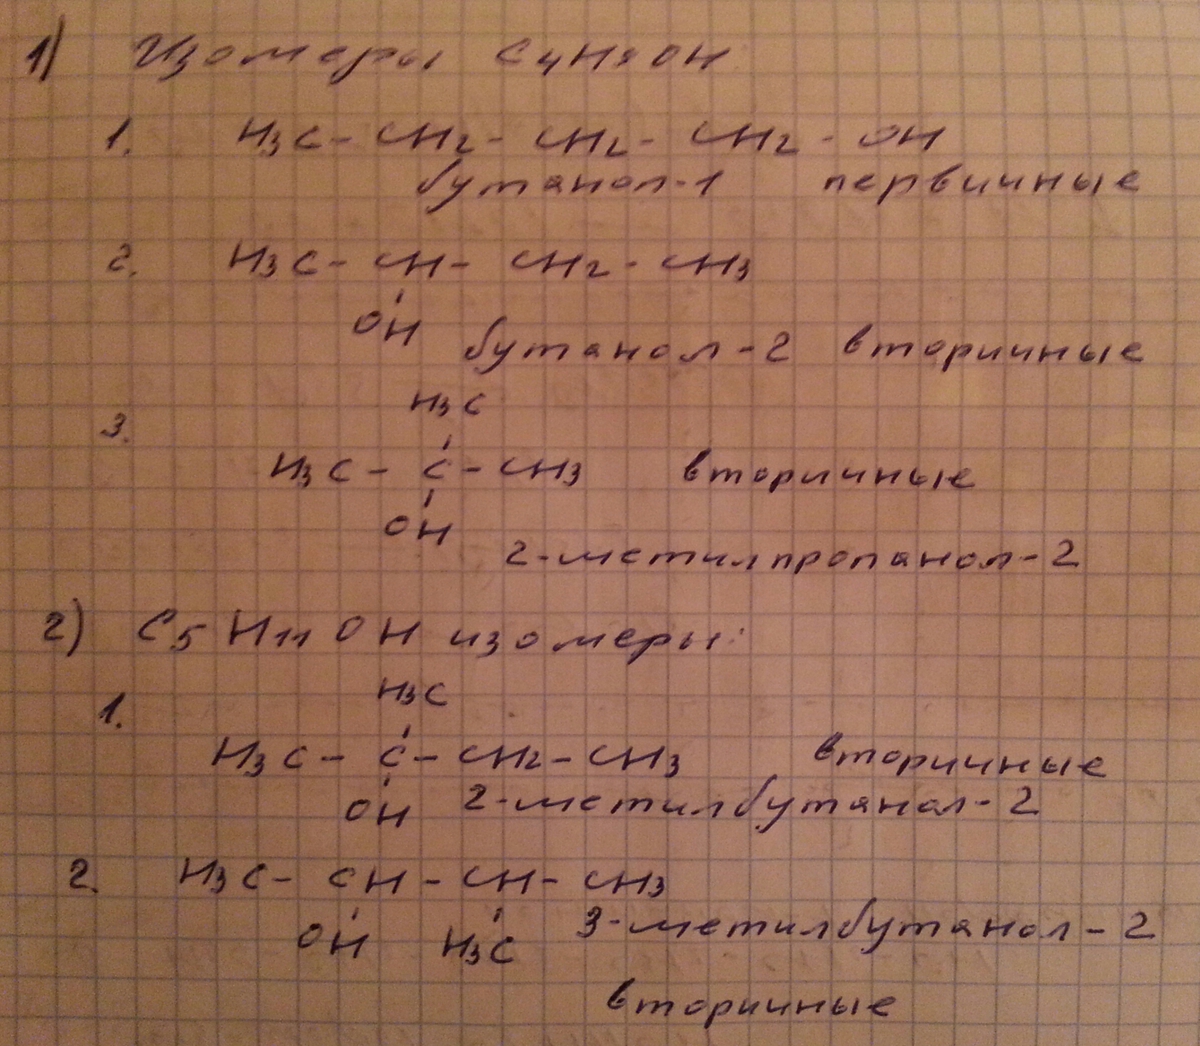 1) Изомеры C4H9OH
1. H3C - CH2 - CH2 - CH2 - OH
бутанол-1 первичные
2. H3C - CH - CH2 - CH3
OH
бутанол-2 вторичные
H3C
3.
H3C - C - CH3 вторичные
OH
2-метилпропанол-2
2) C5H11OH изомеры:
H3C
1.
H3C - C - CH2 - CH3 вторичные
OH 2-метилбутанол-2
2. H3C - CH - CH - CH3
OH H3C 3-метилбутанол-2
вторичные